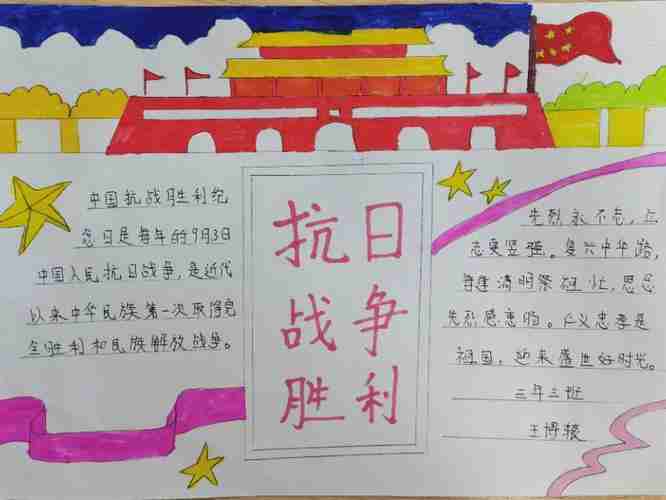 中国抗战胜利纪
念日是每年的9月3日
中国人民抗日战争,是近代
以来中华民族第一次取得完
全胜利和民族解放战争。
抗日
战争
胜利
先烈永不忘,立
志要坚强。复兴中华路,
每逢清明祭祖忙,思忘
先烈感恩肠。仁义忠孝是
祖国,迎来盛世好时光。
三年三班
王博